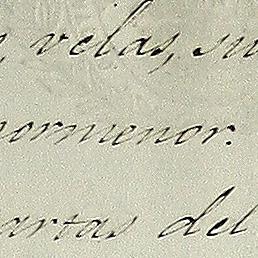 , velas, su
pormenor.
artas del